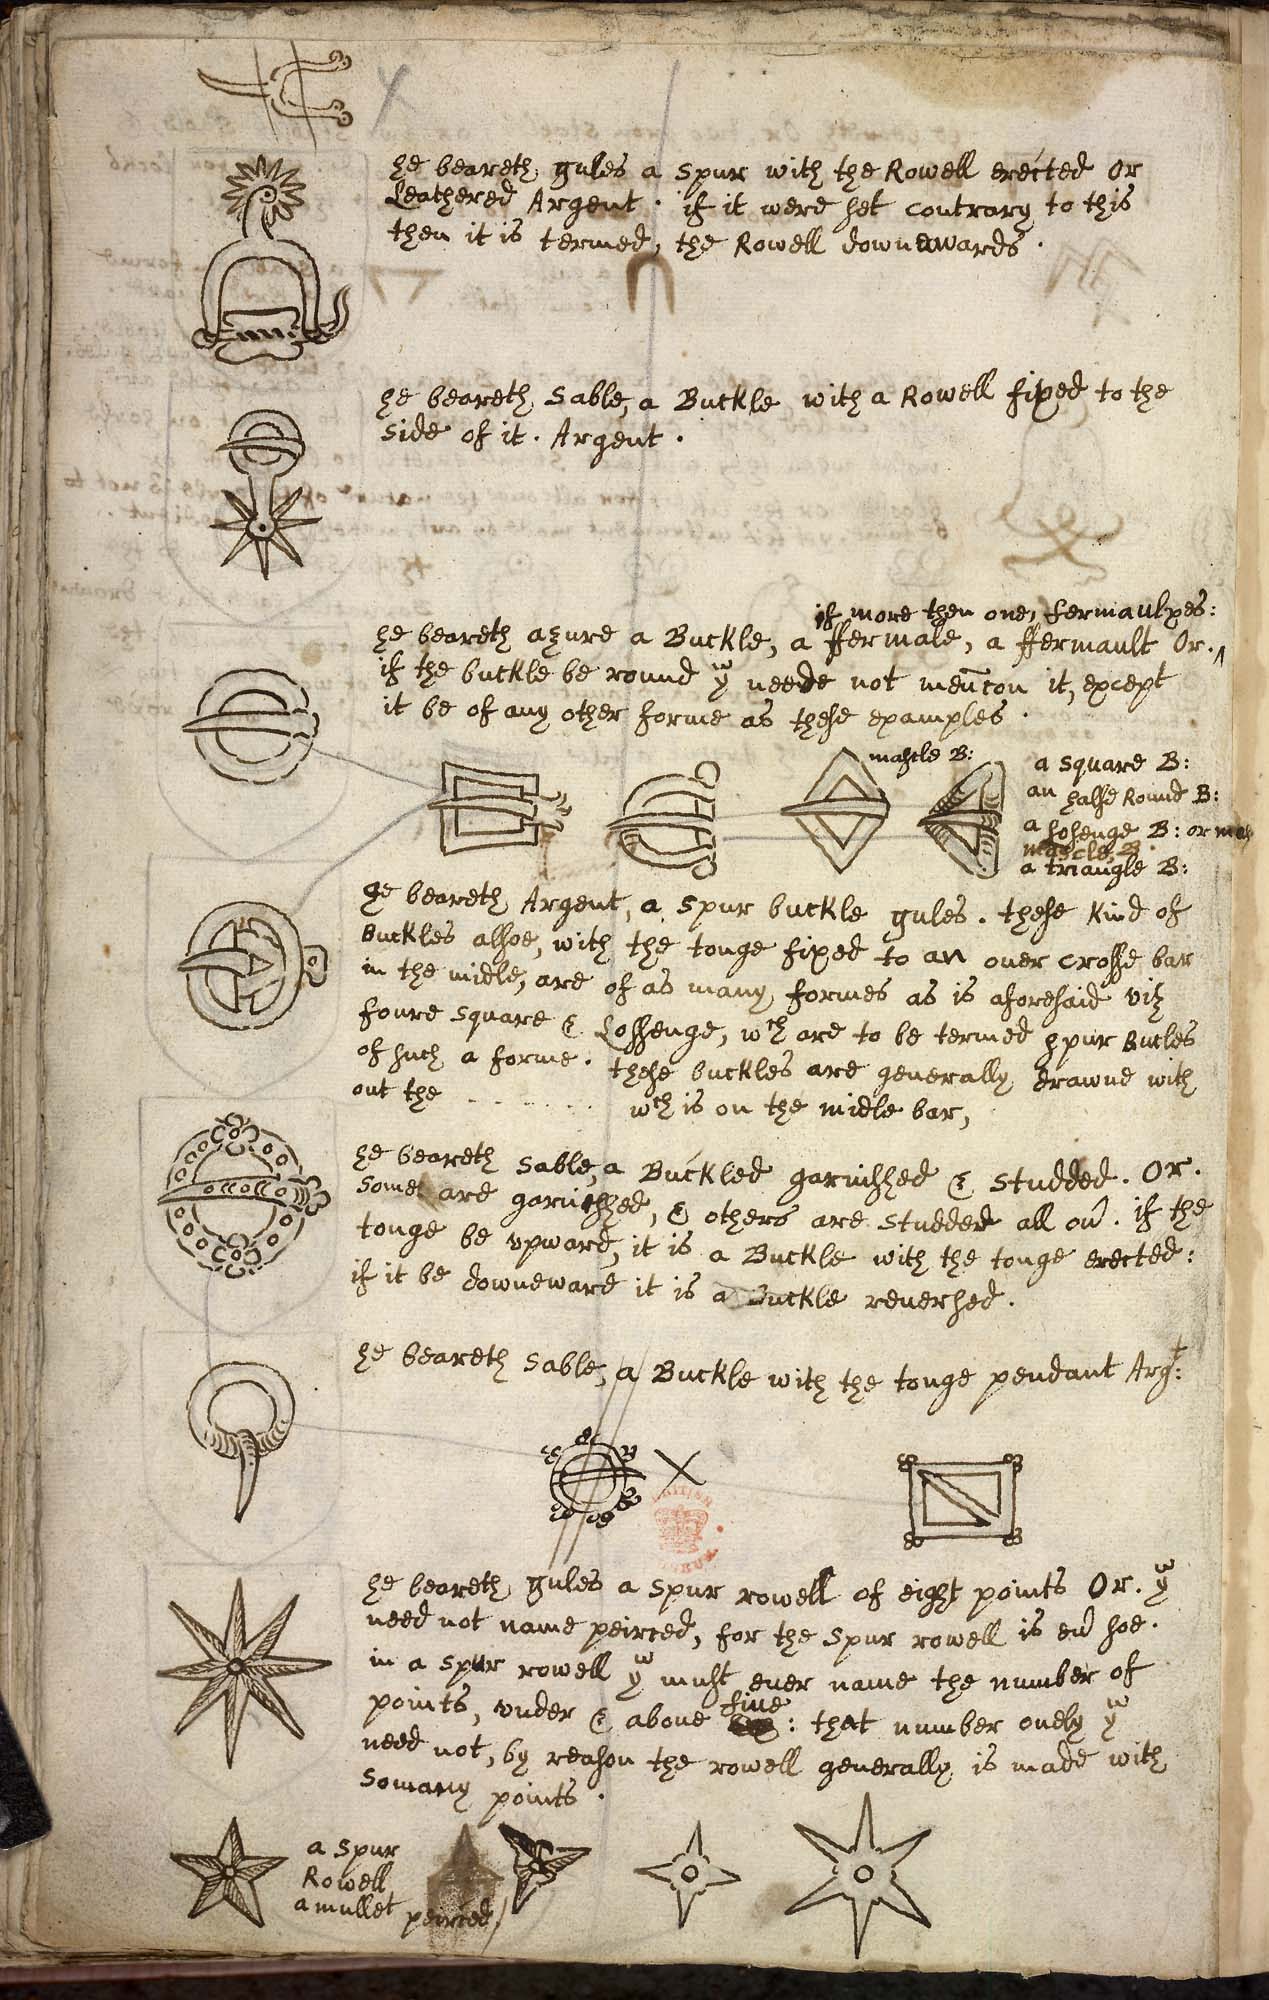 he beareth gules a spur with the Rowell erected Or
Leathered Argent. if it were set contrary to this
then it is termed, the Rowell downewards.
he beareth Sable, a Buckle with a Rowell fixed to the
side of it. Argent.
if more then one, fermaulxes:
he beareth azure a Buckle, a ffermale, a ffermault Or. ^
if the buckle be round yw neede not mencon it, except
it be of any other forme as these examples.
mascle B:
a square B:
an halfe Round B:
a losenge B: or mas
mascle B.
a triangle B:
he beareth Argent, a spur buckle gules. these kind of
Buckles alsoe, with the tonge fixed to an over crosse bar
in the midle, are of as many formes as is aforesaid viz
foure square & Lossenge, wch are to be termed spur Bucles
of such a forme. these buckles are generally drawne with
out the . . . . . . . wch is on the midle bar,
he beareth Sable, a Buckled garnished & studded. Or.
Some are garnished, & others are studded all ou. if the
tonge be upward, it is a Buckle with the tonge erected:
if it be downeward it is a Buckle reversed.
he beareth Sable, a Buckle with the tonge pendant Argt:
BRITISH
MUSEUM
he beareth gules a spur rowell of eight points Or. yw
need not name peirced, for the spur rowell is eu soe.
in a spur rowell yw must ever name the number of
points, under & above five: that number onely yw
need not, by reason the rowell generally is made with
somany points.
a spur
Rowell
a mullet peirced